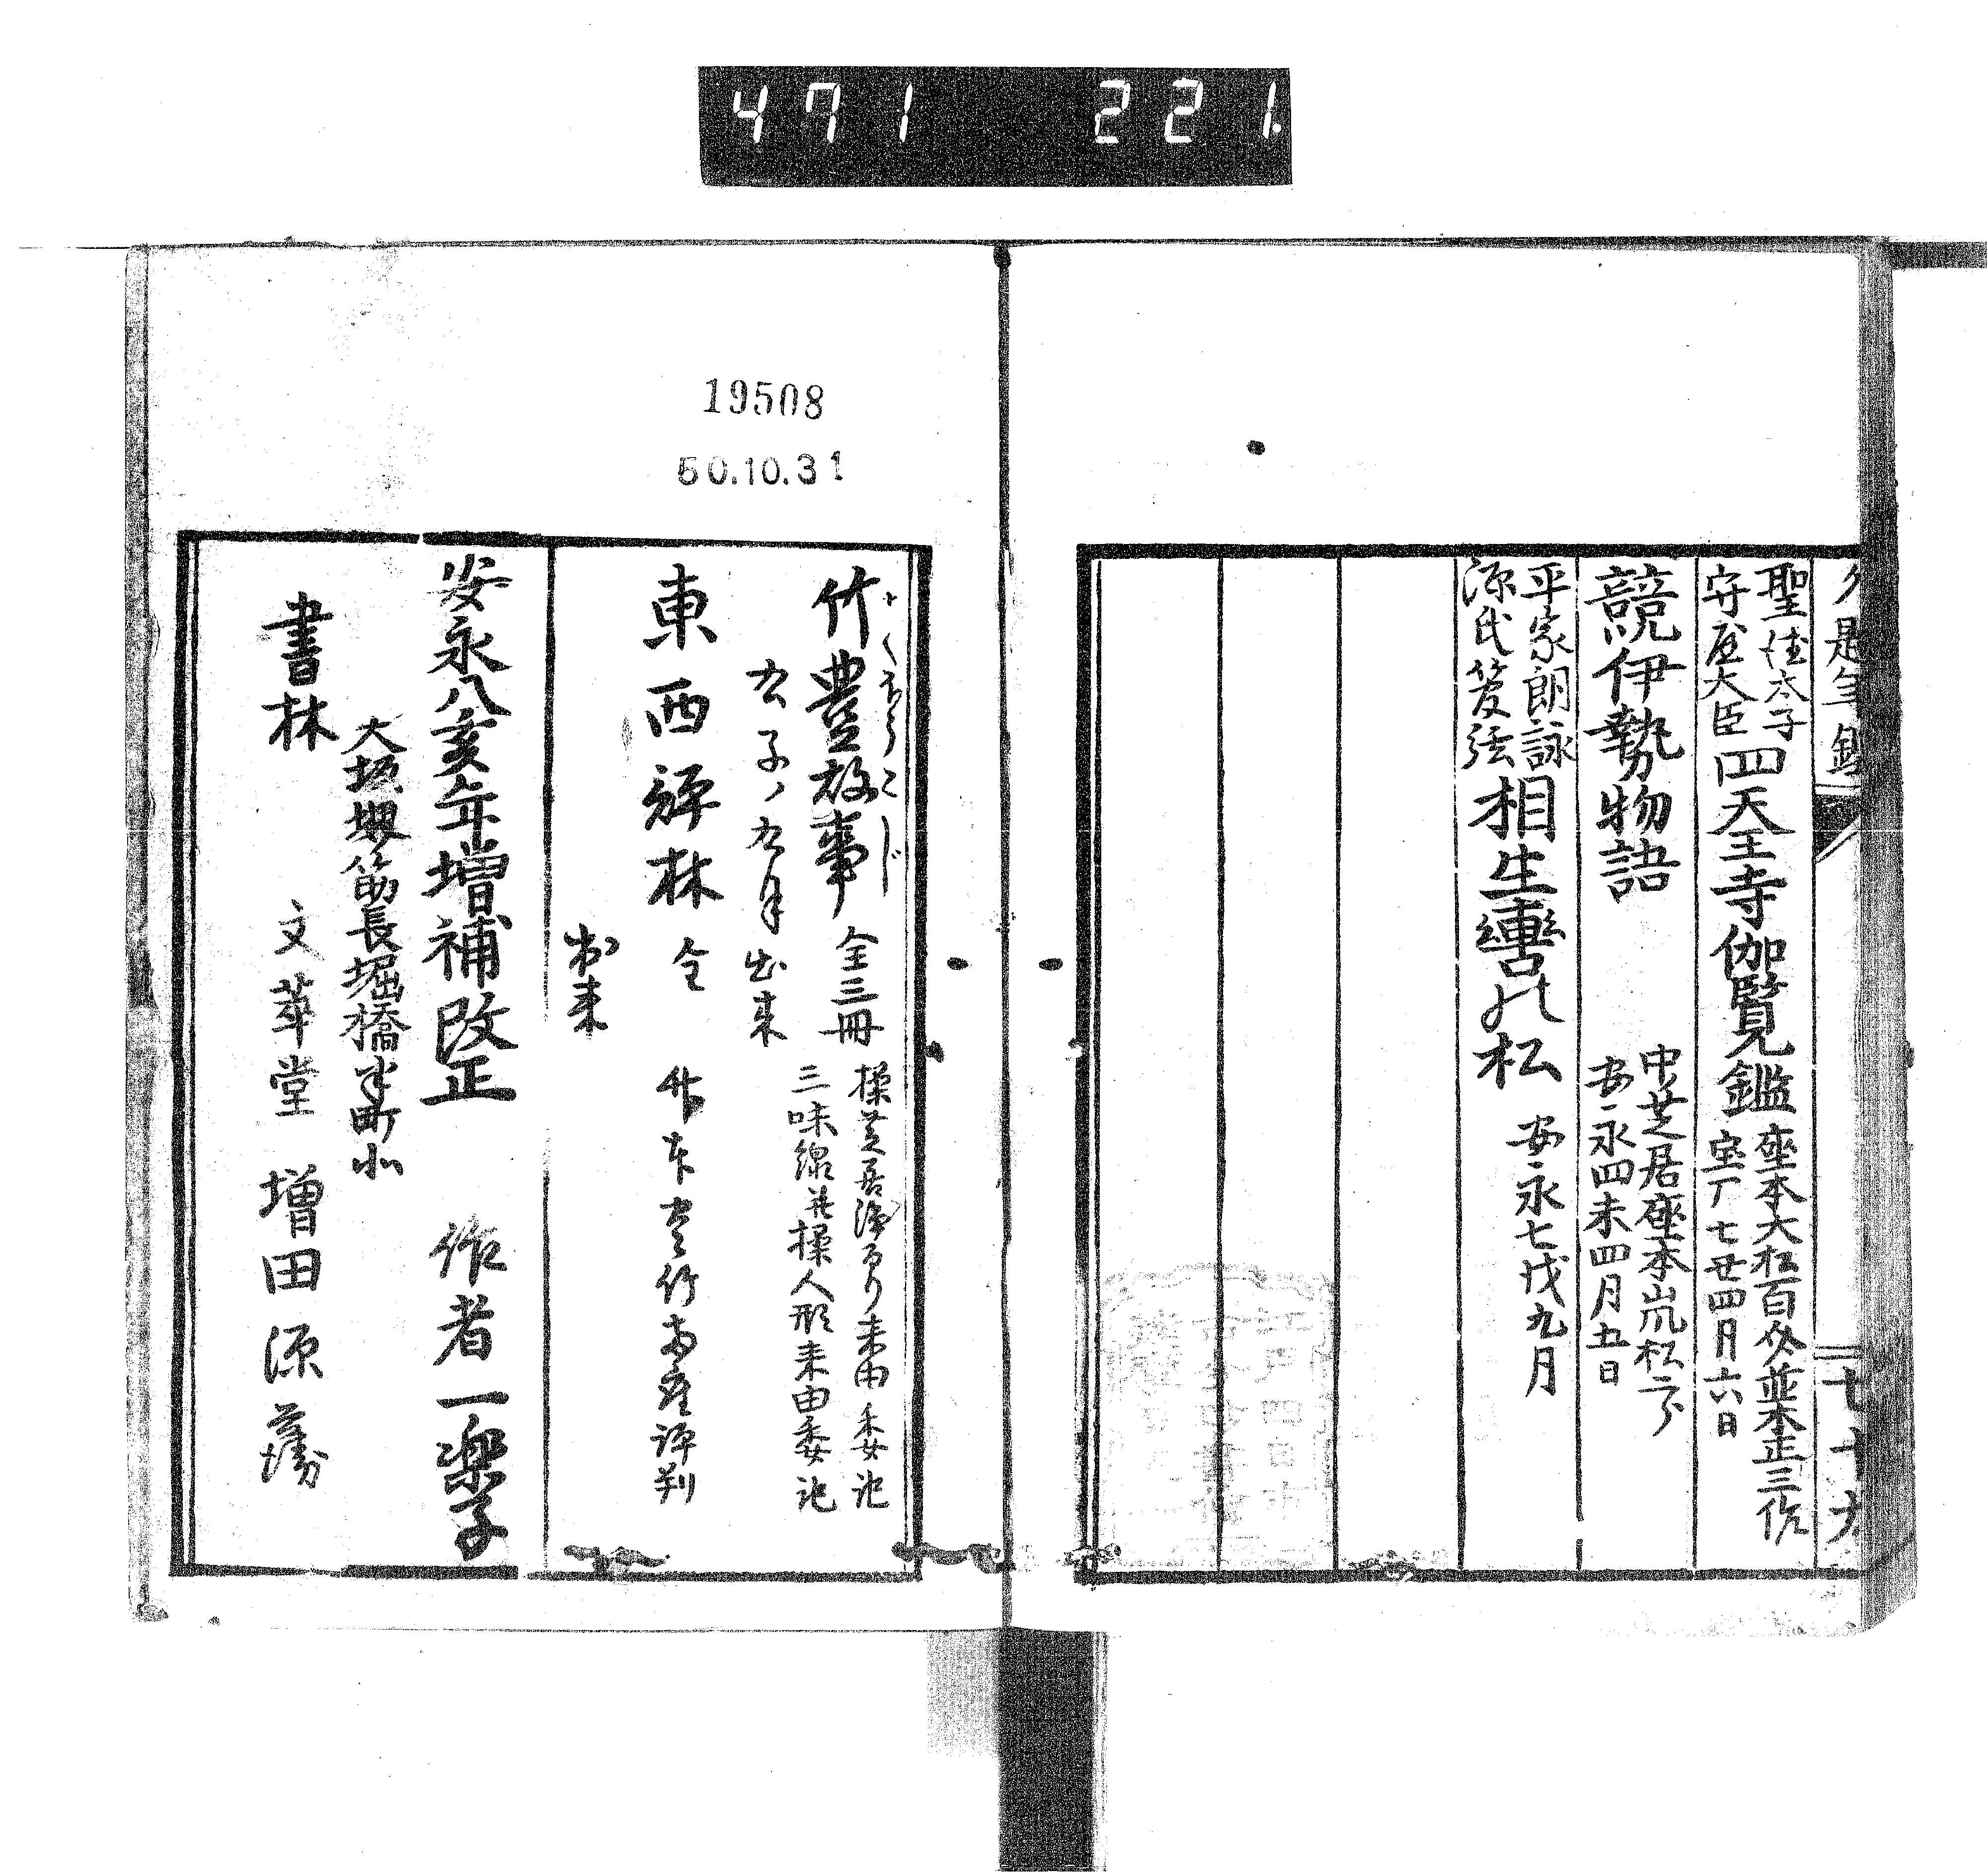 471 221
聖徳太子
守屋大臣
四天王寺伽覧鑑
座本大松百介並木正三作
宝厂七丑四月六日
競伊勢物語
中芝居座本嵐松
安永四未四月五日
平家朗詠
源氏
相生轡の松
安永七戌九月
19508
50.10.31
竹豊故事
ちくほうこじ
全三冊
操芝居浄るり来由委記
三味線并操人形来由委記
九月出来
東西評林
全
竹本豊竹両座評判
出来
安永八亥年増補改正
作者一楽子
大坂堺筋長堀橋半町北
書林
文華堂
増田源